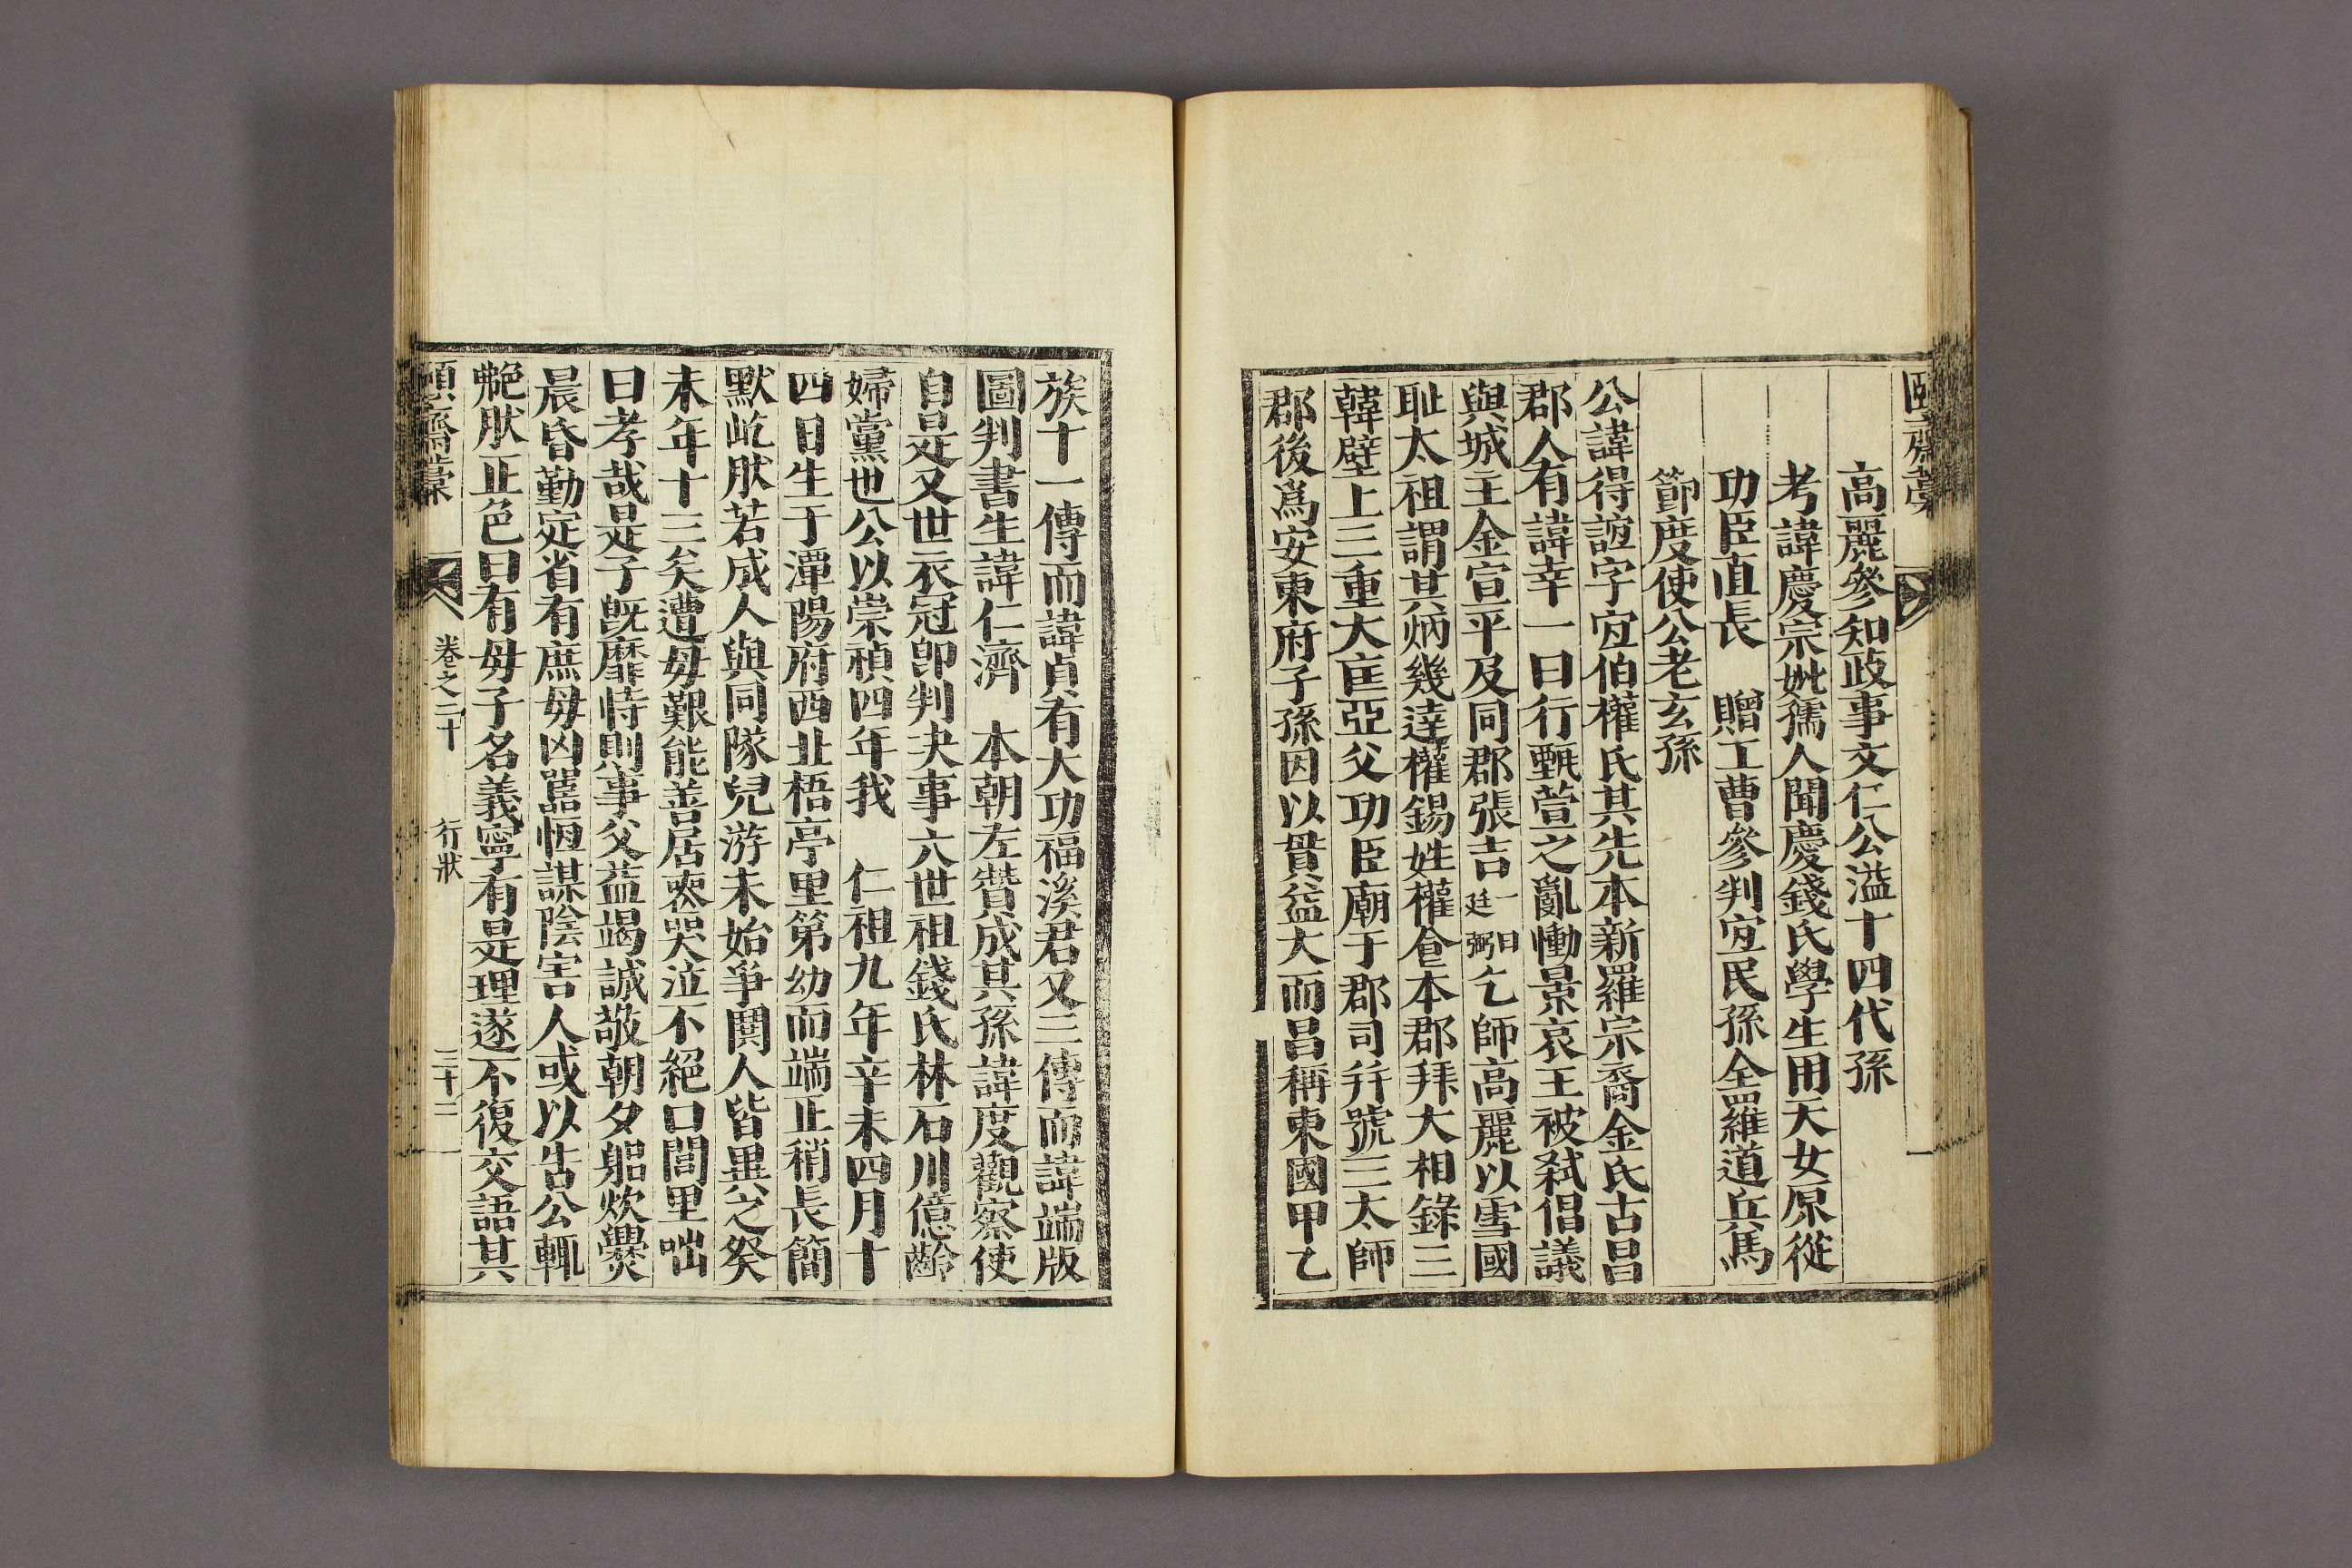 頤齋藁
高麗參知政事文仁公溢十四代孫
考諱慶宗妣孺人聞慶錢氏學生用天女原從
功臣直長　贈工曹參判宜民孫全羅道兵馬
節度使公老玄孫
公諱得誼字宜伯權氏其先本新羅宗裔金氏古昌
郡人有諱幸一曰行甄萱之亂慟景哀王被弒倡議
與城主金宣平及同郡張吉一曰廷弼乞師高麗以雪國
耻太祖謂其炳幾達權錫姓權仓本郡拜大相錄三
韓壁上三重大匡亞父功臣廟于郡司幷號三太師
郡後爲安東府子孫因以貫益大而昌稱東國甲乙
族十一傳而諱貞有大功福溪君又三傳而諱端版
圖判書生諱仁濟　本朝左贊成其孫諱度觀察使
自是又世衣冠卽判决事六世祖錢氏林石川億齡
婦黨也公以崇禎四年我　仁祖九年辛未四月十
四日生于潭陽府西北梧亭里第幼而端正稍長簡
默屹肰若成人與同隊兒游未始爭鬨人皆異之癸
未年十三矣遭母艱能善居喪哭泣不絕口閭里咄
曰孝哉是子旣靡恃則事父益竭誠敬朝夕躳炊爨
晨昏勤定省有庶母凶嚚恆謀陰害人或以告公輒
艴肰正色曰有母子名義寧有是理遂不復交語其
頤齋藁　卷之二十　行狀　三十二